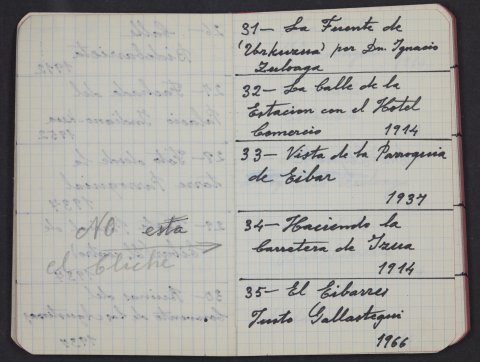 No esta
el Cliché
31- La Fuente de
(Urkuzua) por Dn. Ignacio
Zuloaga
32- La Calle de la
Estacion con el Hotel
Comercio 1914
33- Vista de la Parroquia
de Eibar
1937
34- Haciendo la
Carretera de Izua
1914
35- El Eibarres
Justo Gallastegui
1966